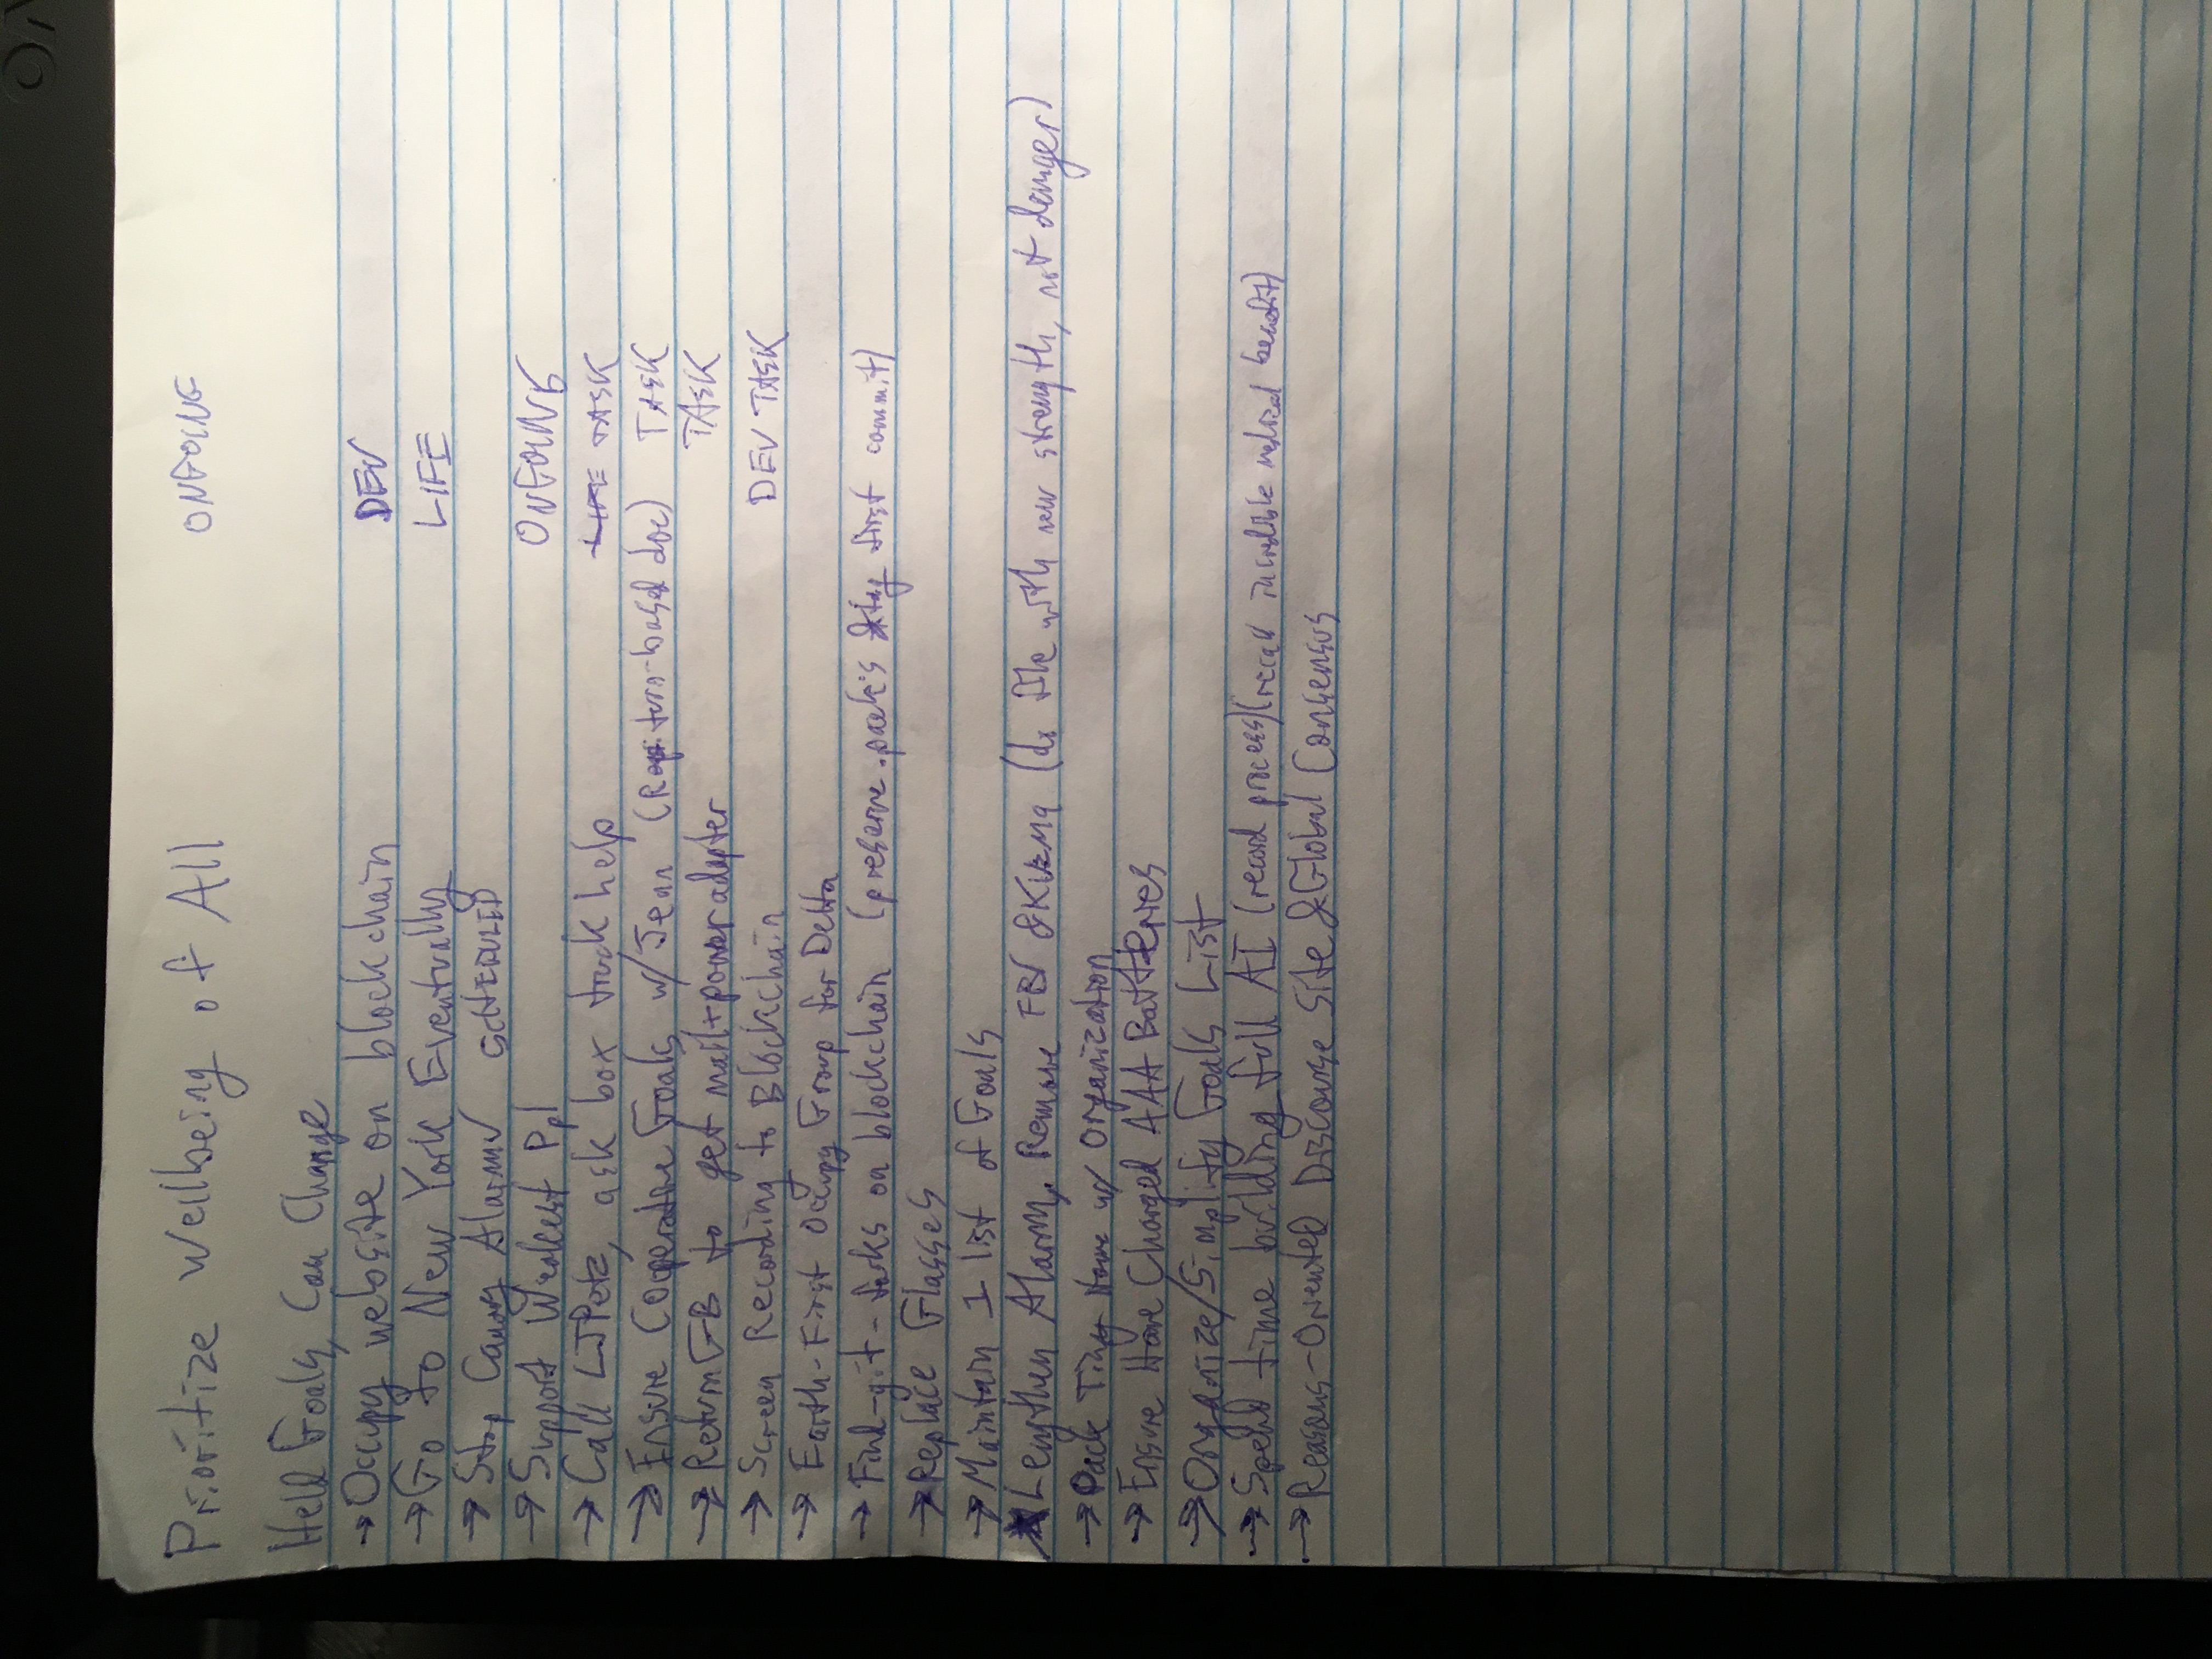 Prioritize Wellbeing of All ONGOING
Held Goals, Can Change
→ Occupy website on blockchain DEV
→ Go to New York Eventually LIFE
→ Stop Canary Alarm SCHEDULED
→ Support Weakest Ppl ONGOING
→ Call LJPetz, ask box truck help LIFE TASK
→ Ensure Cooperative Goals w/ Jenn ( turn-based doc) TASK
→ Return GB to get mail + power adapter TASK
→ Screen Recording to Blockchain DEV TASK
→ Earth-First Occupy Group for Delta
→ Find-git-forks on blockchain (preserve .pack's & tag first commit)
→ Replace Glasses
→ Maintain 1 list of Goals
Lengthen Alarm. Remove & (do with new strength, not danger)
→ Pack Tiny Home w/ Organization
→ Ensure Have Charged AAA Batteries
→ Organize/Simplify Goals List
→ Spend time building full AI (record process) (recall incredible medical benefit)
→ Reasons-Oriented Discourse Site & Global Consensus